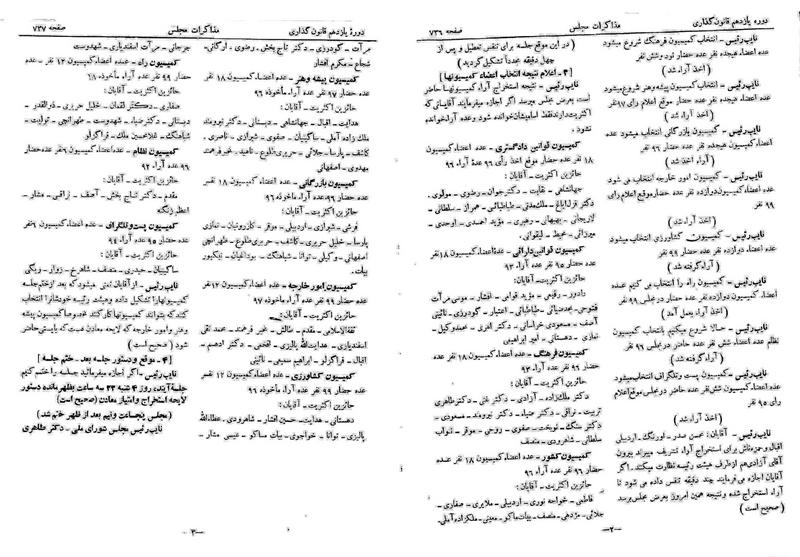 دوره یازدهم قانون گذاری
مذاکرات مجلس
صفحه ۷۳۶
نایب رئیس - انتخاب کمیسیون فرهنگ شروع میشود
عده اعضاء هیجده نفر عده حضار نود وشش نفر
( اخذ آراء شد )
نایب رئیس - انتخاب کمیسیون پیشه وهنر شروع میشود
عده اعضاء هیجده نفر عده حضار موقع اعلام رای ۹۷ نفر
( اخذ آراء شد )
نایب رئیس - کمیسیون بازرگانی انتخاب میشود عده
اعضاء کمیسیون هیجده نفر عده حضار ۹۹ نفر
( اخذ آراء شد )
نایب رئیس - کمیسیون امور خارجه انتخاب می شود
عده اعضاء کمیسیون دوازده نفر عده حضار موقع اعلام رای
۹۹ نفر
( اخذ آراء شد )
نایب رئیس - کمیسیون کشاورزی انتخاب میشود
عده اعضاء دوازده نفر عده حضار ۹۹ نفر
( آراء گرفته شد )
نایب رئیس - کمیسیون راه را انتخاب می کنیم عده
اعضاء کمیسیون دوازده نفر عده حضار در مجلس ۹۹ نفر
( اخذ آراء بعمل آمد )
نایب رئیس - حالا شروع میکنیم بانتخاب کمیسیون
نظام عده اعضاء شش نفر عده حاضر در مجلس ۹۶ نفر
( آراء گرفته شد )
نایب رئیس - کمیسیون پست و تلگراف انتخاب میشود
عده اعضاء کمیسیون شش نفر عده حاضر در مجلس موقع اعلام
رای ۹۵ نفر
( اخذ آراء شد )
نایب رئیس - آقایان : محسن صدر - اورنگ - اردبیلی
اقبال و حمزه تاش برای استخراج آراء تشریف میبرند بیرون
آقای آزادی هم از طرف هیئت رئیسه نظارت میکنند . اگر
آقایان اجازه می فرمایند چند دقیقه تنفس داده می شود تا
آراء استخراج شده و نتیجه همین امروز بعرض مجلس برسد
( صحیح است )
( در این موقع جلسه برای تنفس تعطیل و پس از
چهل دقیقه مجدداً تشکیل گردید )
[ ۳ - اعلام نتیجه انتخاب اعضاء کمیسیونها ]
نایب رئیس - نتیجه استخراج آراء کمیسیونها حاضر
است بعرض مجلس میرسد اگر اجازه میفرمایند آقایانی که
اکثریت دارند فقط اسامیشان خوانده شود و عده آراء خوانده
نشود .
کمیسیون قوانین دادگستری - عده اعضاء کمیسیون
۱۸ نفر حضار موقع اخذ رأی ۹۹ عدهٔ آراء ۹۶
حائزین اکثریت - آقایان :
جهانشاهی - نقابت - دکتر جوان - رضوی - مولوی -
دکتر قزل ایاغ - ملک مدنی - طباطبائی - همراز - سلطانی -
لاریجانی - بهبهانی - رهبری - مؤید احمدی - اوحدی -
میرزائی - خطیبی - لیقوانی .
کمیسیون قوانین دارائی - عده اعضاء کمیسیون ۱۸ نفر
عده حضار ۹۵ نفر عده آراء ۹۳
حائزین اکثریت - آقایان :
دادور - رفیعی - مؤید قوامی - افشار - موسی مرآت
فتوحی - محمد ضیائی - طباطبائی - اعتبار - گودرزی - نائینی
آصف - مسعودی خراسانی - دکتر اهری - محمد وکیل -
نمازی - دهستانی - امیر ابراهیمی
کمیسیون فرهنگ - عده اعضاء کمیسیون ۱۸ نفر
حضار ۹۶ نفر عده آراء ۹۳
حائزین اکثریت - آقایان :
دکتر ملک زاده - آزادی - دکتر غنی - دکتر طاهری
تربیت - نراقی - دکتر ضیاء - دکتر نیرومند - مسعودی -
دکتر سنگ - نوبخت - صفوی - روحی - موقر - نواب
سلطانی - شاهرودی - منصف
کمیسیون کشور - عده اعضاء کمیسیون ۱۸ نفر عده
حضار ۹۶ نفر عده آراء ۹۶
حائزین اکثریت - آقایان :
فاطمی - خواجه نوری - اردبیلی - ملایری - صفاری -
جلائی - مژدهی - منصف - بیات ماکو - معینی - ملک زاده آملی
—۲—
دورهٔ یازدهم قانون گذاری
مذاکرات مجلس
صفحه ۷۳۷
مرآت - گودرزی - دکتر تاج بخش - رضوی - اورگانی -
شجاع - مکرم افشار
کمیسیون پیشه وهنر - عده اعضاء کمیسیون ۱۸ نفر
حضار ۹۷ نفر عده آراء مأخوذه ۹۶
حائزین اکثریت - آقایان :
هدایت - اقبال - جهانشاهی - دهستانی - دکتر نیرومند
ملک زاده آملی - ساگینیان - صفوی - شیرازی - ناصری -
کاشف - پارسا - جلائی - حریری طلوع - ناهید - غیر فرهمند
یهدوی - اصفهانی
کمیسیون بازرگانی - عده اعضاء کمیسیون ۱۸ نفر
عده حضار ۹۹ عده آراء مأخوذه ۹۶
حائزین اکثریت - آقایان :
فرشی - شیرازی - اردبیلی - موقر - کازرونیان - نمازی
پارسا - خلیل حریری - کاشف - حریری طلوع - طهرانچی
اصفهانی - وکیلی - توانا - شباهنگ - بوداغیان - نیکپور
بیات .
کمیسیون امور خارجه - عده اعضاء کمیسیون ۱۲ نفر
عده حضار ۹۹ نفر عده آراء مأخوذه ۹۷
حائزین اکثریت - آقایان :
ثقة الاسلامی - مقدم - طالش - غیر فرهمند - محمد تقی
اسفندیاری - هدایت الله پالیزی - فتحی - دکتر ادهم -
اقبال - قراگزلو - ابراهیم سمیعی - نائینی
کمیسیون کشاورزی - عده اعضاء کمیسیون ۱۲ نفر
عده حضار ۹۹ نفر عده آراء ۹۶
حائزین اکثریت - آقایان :
دهستانی - هدایت - حسین افشار - شاهرودی - عطاءالله
پالیزی - توانا - خواجوی - بیات ماکو - عیسی مشار -
جرجانی - مرآت اسفندیاری - شهدوست
کمیسیون راه - عده اعضاء کمیسیون ۱۲ نفر عده
حضار ۹۹ نفر عده آراء مأخوذه ۶۸
حائزین اکثریت - آقایان :
صفاری - دکتر لقمان - خلیل حریری - ذوالقدر -
دبستانی - دکتر ضیاء - شهدوست - طهرانچی - تولیت -
شباهنگ - غلامحسین ملک - قراگزلو
کمیسیون نظام - عده اعضاء کمیسیون ۶ نفر عده حضار
۹۶ عده آراء ۹۲
حائزین اکثریت آقایان :
مقدم - دکتر تاج بخش - آصف - نراقی - مشار -
اعظم زنگنه
کمیسیون پست و تلگراف - عده اعضاء کمیسیون ۶ نفر
عده حضار ۹۵ نفر عده آراء ۹۴
حائزین اکثریت - آقایان :
ساگینیان - حیدری - منصف - شاهرخ - زوار - ریگی
نایب رئیس - از آقایان تمنی میشود که بعد از ختم جلسه
کمیسیونها را تشکیل داده و هیئت رئیسه خودشان را انتخاب
کنند که بتوانند کمیسیونها کار کنند مخصوصاً کمیسیون پیشه
وهنر و امور خارجه که لایحه معادن هست که بایستی حاضر
شود ( صحیح است )
[ ۴ - موقع و دستور جلسه بعد - ختم جلسه ]
نایب رئیس - اگر اجازه میفرمائید جلسه را ختم کنیم
جلسه آینده روز ۴ شنبه ۲۳ سه ساعت بظهر مانده دستور
لایحه استخراج و امتیاز معادن ( صحیح است )
( مجلس پنج ساعت و نیم بعد از ظهر ختم شد )
نایب رئیس مجلس شورای ملی - دکتر طاهری
—۳—